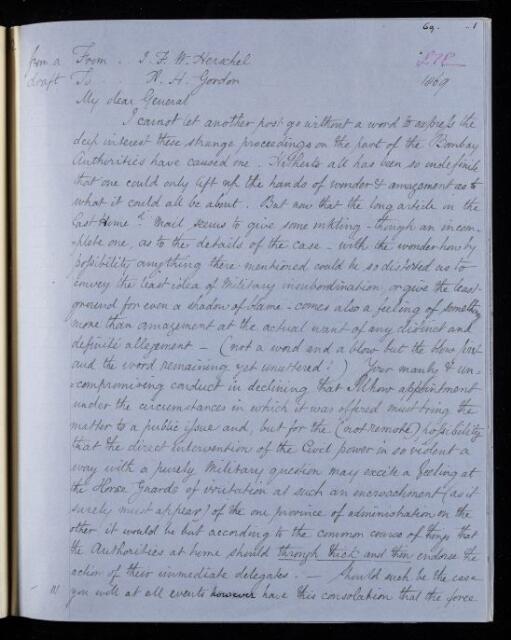 69. 1
from a From . J. F. W. Herschel
draft To . W. H. Gordon 1869
My dear General
I cannot let another post go without a word to express the
deep interest these strange proceedings on the part of the Bombay
Authorities have caused one. Hitherto all has been so indefinite
that one could only lift up the hands of wonder & amazement as to
what it could all be about. But now that the long article in the
last Home Mail seems to give some inkling - though an incom-
-plete one, as to the details of the case - with the wonder how by
possibility anything there mentioned could be so distorted as to
convey the least idea of Military insubordination, or give the least
ground for even a shadow of blame - comes also a feeling of something
more than amazement at the actual want of any distinct and
definite allegement - (not a word and a blow but the blow first
and the word remaining yet unuttered!) Your manly & un-
-compromising conduct in declining that Mhow appointment
under the circumstances in which it was offered must bring the
matter to a public issue and, but for the (not remote) possibility
that the direct intervention of the Civil power in so violent a
way with a purely Military question may excite a feeling at
the Horse Guards of irritation at such an encroachment (as it
surely must appear) of the one province of administration on the
other it would be but according to the common course of things that
the Authorities at home should through thick and thin endorse the
action of their immediate delegates. - Should such be the case
you will at all events however have this consolation that the force